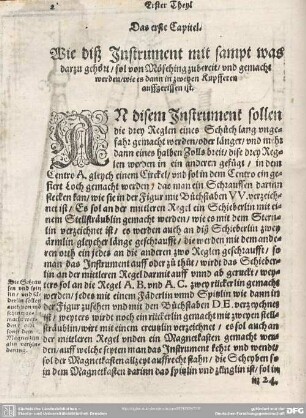 2
Erster Theyl
Das erste Capitel.
Wie diß Instrument mit sampt was
darzu gehört / sol von Mösching zubereit / vnd gemacht
werden / wie es dann in zweyen Kupfferen
auffgerissen ist.
AN disem Instrument sollen
die drey Reglen eines Schůch lang vnge-
fahr gemacht werden / oder länger / vnd mehr
dann eines halben Zolls breit / dise drey Reg-
len werden in ein anderen gefügt / in dem
Centro A, gleych einem Circkel / vnd sol in dem Centro ein ge-
fiert Loch gemacht werden / das man ein Schrauffen darinn
stecken kan / wie sie in der Figur mit Bůchstaben V V. verzeych-
net ist / Es sol an der mitleren Regel ein Schieberlin mit einem
Stellschräublin gemacht werden / wie es mit dem Sternlin
verzeichnet ist / es werden auch an diß Schieberlin zwey
ärmlin gleycher länge geschaufft / die werden mit dem andren
orth ein jedes an die anderen zwo Reglen geschraufft / so
man das Instrument auff oder zů thůt / wird das Schieber-
lin an der mitleren Regel darmit auff vnnd ab geruckt / wey-
ters sol an die Regel A. B. vnd A C. zwey rückerlin gemacht
werden / jedes mit einem Fäderlin vnnd Spitzlin wie dann in
der Figur zusehen vnd mit den Bůchstaben D E. verzeychnet
ist / weyters wurdt noch ein rückerlin gemacht mit zweyen stell-
sträublin / wirt mit ein creutzlin verzeichnet / es sol auch an
der mitleren Regel vnden ein Magnetkasten gemacht wer-
den / auff welche seyten man das Instrument kehrt vnd wendt /
sol der Magnetkasten allzeyt auffrecht stahn / die Scheyben so
in dem Magnetkasten darinn das spitzlin vnd zünglin ist / sol in
in 24.